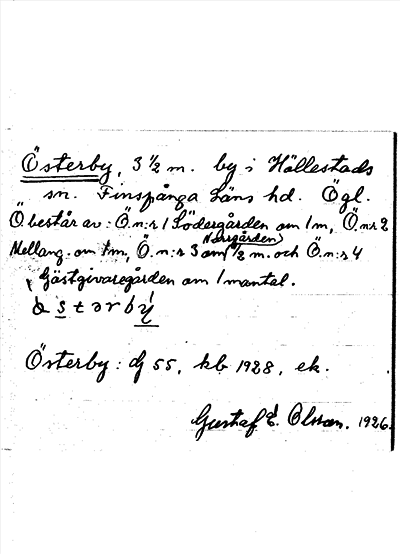 Österby, 3 ½ m. by i Hällestads
sn. Finspånga Läns hd. Ögl.
Ö. består av: Ö. n:r 1 Södergården om 1 m, Ö. n:r 2
Mellang. om 1 m, Ö. n:r 3 Norrgården om ½ m. och Ö. n:r 4
Gästgivaregården om 1 mantal.
Österby: dj 55, kb 1928, ek.
Gustaf E. Olsson. 1926.